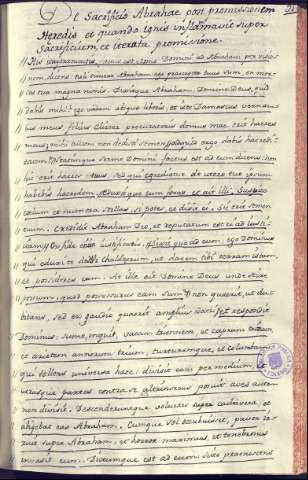 De Sacrificio Abrahae post promissionem
Heredis et quando ignis inflamavit super
Sacrificium, et iterata promissione.
His itaque transactis, factus est sermo Domini ad Abraham per visio
nem dicens: noli timere Abraham, ego protector tuus sum, et mer
ces tua magna nimis. Dixitque Abraham: Domine Deus, quid
dabis mihi? ego vadam absque liberis, et iste Damascus vernacu
lus meus filius Eliezer procuratoris domus meae erit haeres
meus; mihi autem non dedisti semen
tatem? Statimque sermo Domini factus est ad eum dicens: non
hic erit haeres tuus, sed qui egredietur de utero tuo ipsum
habebis haeredem. Eduxitque eum foras, et ait illi: Suspice
coelum et numera stellas, si potes, et dixit ei: Sic erit semen
tuum. Credidit Abraham Deo, et reputatum est ei ad iusti
tiam. Dixitque ad eum: ego Dominus
qui eduxi te de Ur chaldeorum, ut darem tibi terram istam,
et possideres eam. At ille ait Domine Deus unde scire
possum, quod possessurus eam sum? non quaerit, ut du
bitans, sed ex gaudio quaerit amplius Et respondit
Dominus: sume, inquit, vaccam triennem, et capram trimam
et arietem annorum trium, turturemque, et columbam,
qui tollens universa haec: divisit ea per medium, et
utrasque partes contra se altrinsecus posuit, aves autem
non divisit. Descenderuntque volucres super cadavera, et
abigebat eas Abraham. Cumque sol occubuisset, pavor ir
ruit super Abraham, et horror maximus, et tenebrosus
invasit eum. Dictumque est ad eum: scito praenoscens